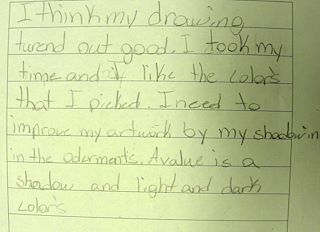 I think my drawing
turend out good. I took my
time and I like the colors
that I picked. I need to
improve my artwork by my shadowin
in the oderments. A value is a
shadow and light and dark
colors